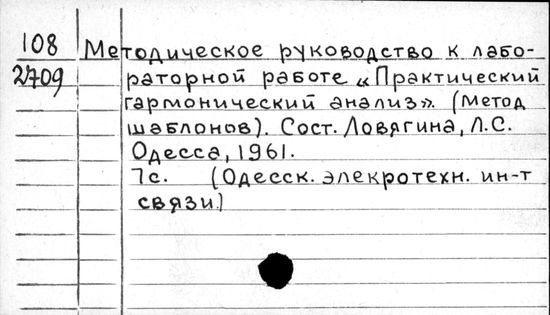 108
2709
Методическое руководство к лабо-
раторной работе „Практический
гармонический анализ". (Метод
шаблонов). Сост. Ловягина, Л.С.
Одесса, 1961.
7с. (Одесск. элекротехн. ин-т
связи.)